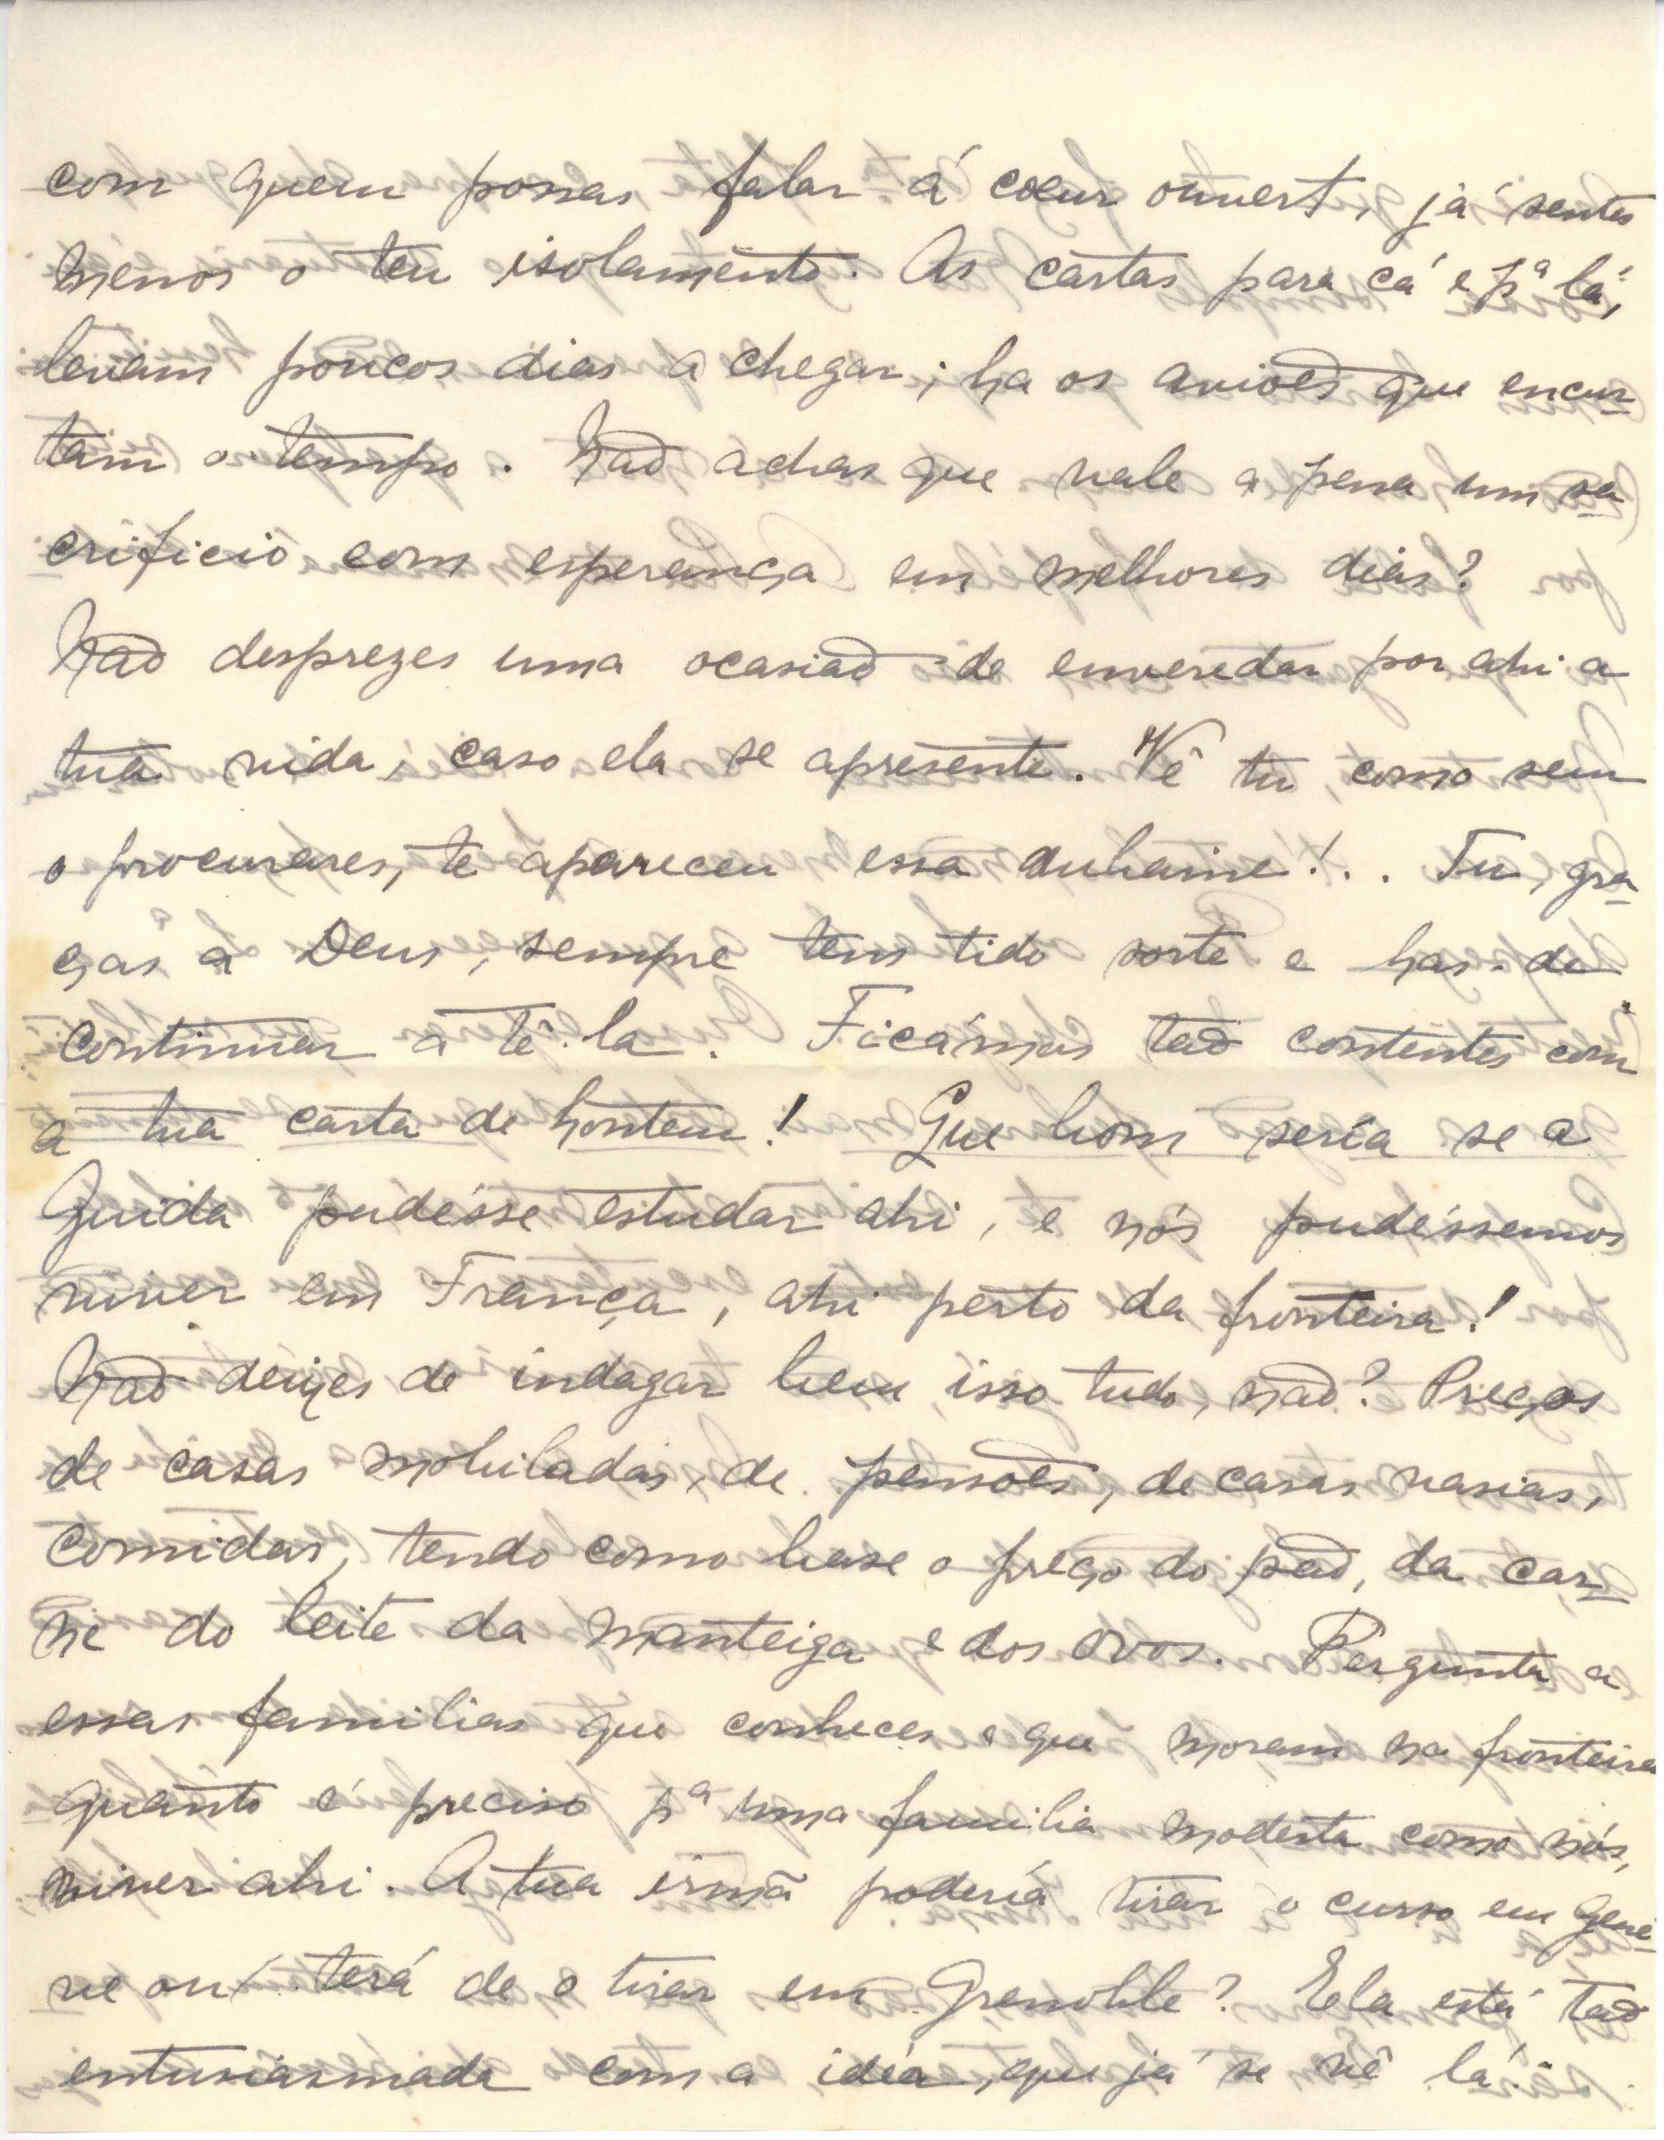 com quem possas falar á coeur ouvert, já sentes
menos o teu isolamento. As cartas para cá e pª lá,
levam poucos dias a chegar; ha os aviões que encur-
tam o tempo. Não achas que vale a pena um sa-
crificio com esperança em melhores dias?
Não desprezes uma ocasião de enveredar por ahi a
tua vida, caso ela se apresente. Vê tu, como sem
o procurares, te apareceu essa aubaine!.. Tu, gra-
ças a Deus, sempre tens tido sorte e has-de
continuar a tê-la. Ficámos tão contentes com
a tua carta de hontem! Que bom seria se a
Guida pudésse estudar ahi, e nós pudéssemos
viver em França, ahi perto da fronteira!
Não deixes de indagar bem, isso tudo, não? Preços
de casas mobiladas, de pensões, de casas vasias,
comidas, tendo como base o preço do pão, da car-
ne do leite da manteiga e dos ovos. Pergunta a
essas familias que conheces e que moram na fronteira
quanto é preciso pª uma familia modesta como nós,
viver ahi. A tua irmã poderia tirar o curso em Genè-
ve ou terá de o tirar em Grenoble? Ela está tão
entusiasmada com a idéa, que já se vê lá.